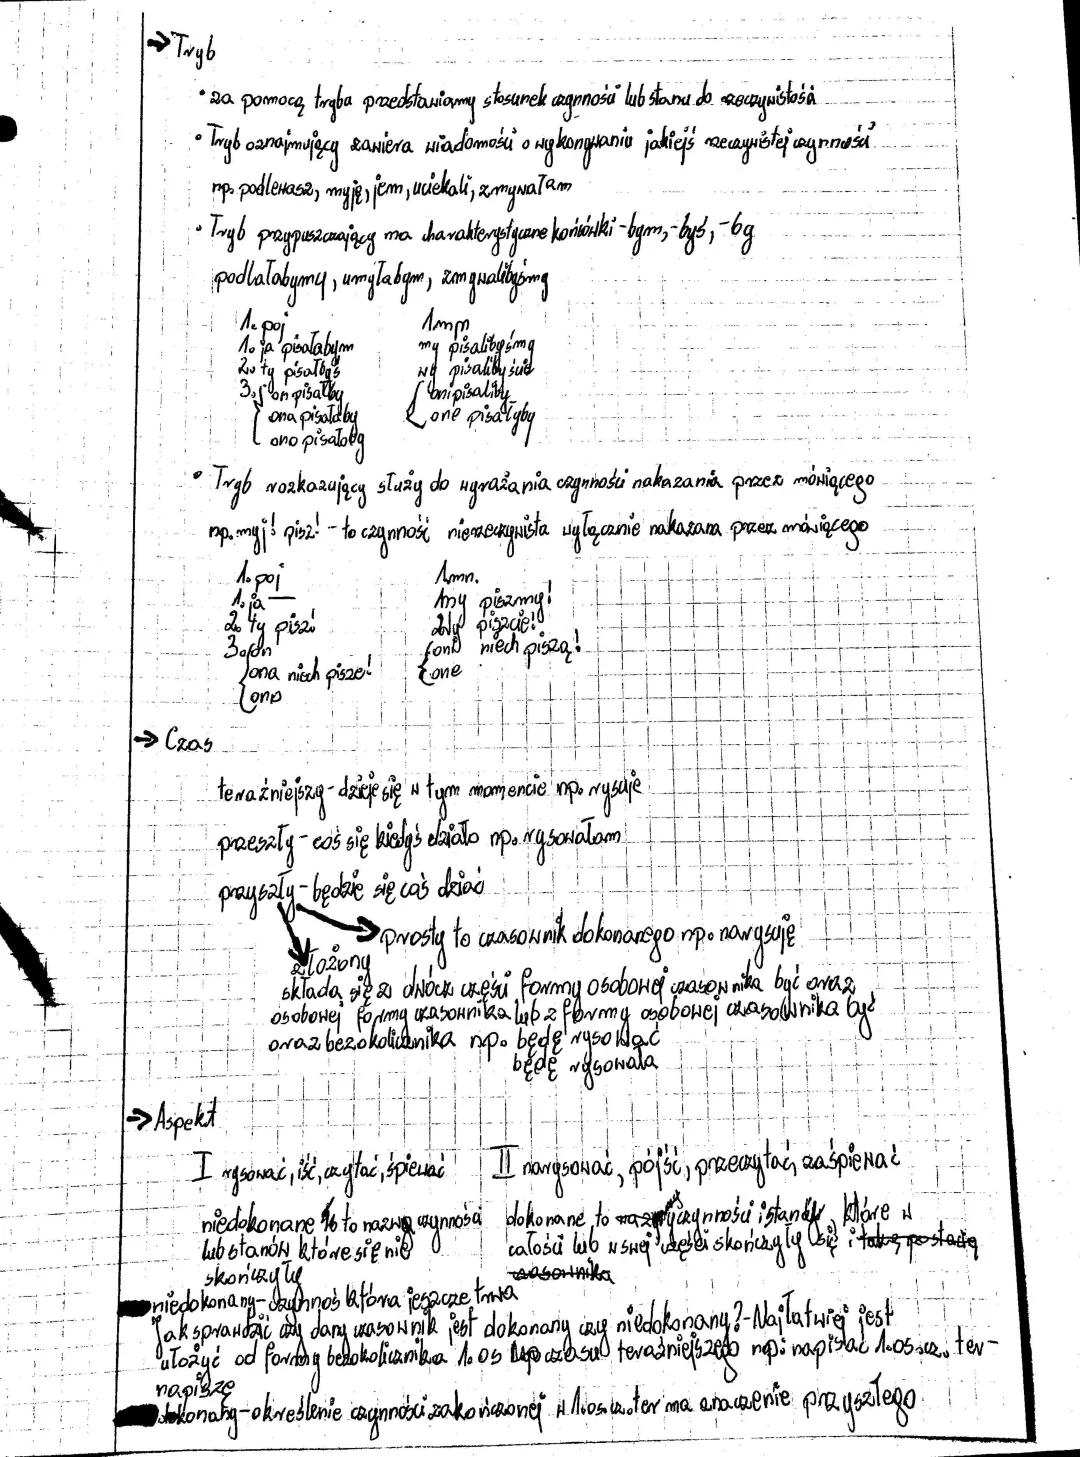 → Tryb
• za pomocą tryba przedstawiamy stosunek czynności lub stanu do rzeczywistości
• Tryb oznajmujący zawiera wiadomości o wykonywaniu jakiejś rzeczywistej czynności
np. podlewasz, myję, jem, uciekali, zmywałam
• Tryb przypuszczający ma charakterystyczne końcówki -bym, -byś, -by
podlałabymy, umyłabym, zmywalibyśmy
l. poj l.mn
1. ja pisałabym my pisalibyśmy
2. ty pisałbyś wy pisalibyście
3. on pisałby oni pisaliby
ona pisałaby one pisałyby
ono pisałoby
• Tryb rozkazujący służy do wyrażania czynności nakazania przez mówiącego
np. myj! pisz! - to czynność nierzeczywista wyłącznie nakazana przez mówiącego
l. poj l.mn.
1. ja — my piszmy!
2. ty pisz! wy piszcie!
3. on oni niech piszą!
ona niech pisze! one
ono
→ Czas
teraźniejszy - dzieje się w tym momencie np. rysuje
przeszły - coś się kiedyś działo np. rysowałam
przyszły - będzie się coś dziać
prosty to czasownik dokonanego np. narysuję
złożony
składa się z dwóch części formy osobowej czasownika być oraz
osobowej formy czasownika lub z formy osobowej czasownika być
oraz bezokolicznika np. będę rysować
będę rysowała
→ Aspekt
I rysować, iść, czytać, śpiewać II narysować, pójść, przeczytać, zaśpiewać
niedokonane to nazwa czynności dokonane to czynności i stanów, które w
lub stanów które się nie całości lub w swej części skończyły się i takę postacią
skończyły czasownika
niedokonany - czynnoś która jeszcze trwa
Jak sprawdzić czy dany czasownik jest dokonany czy niedokonany? - Najłatwiej jest
ułożyć od formy bezokolicznika 1. os czasu teraźniejszego np: napisać 1. os. cz. ter-
napiszę
dokonany - określenie czynności zakończonej w 1. os. cz. ter ma znaczenie przyszłego